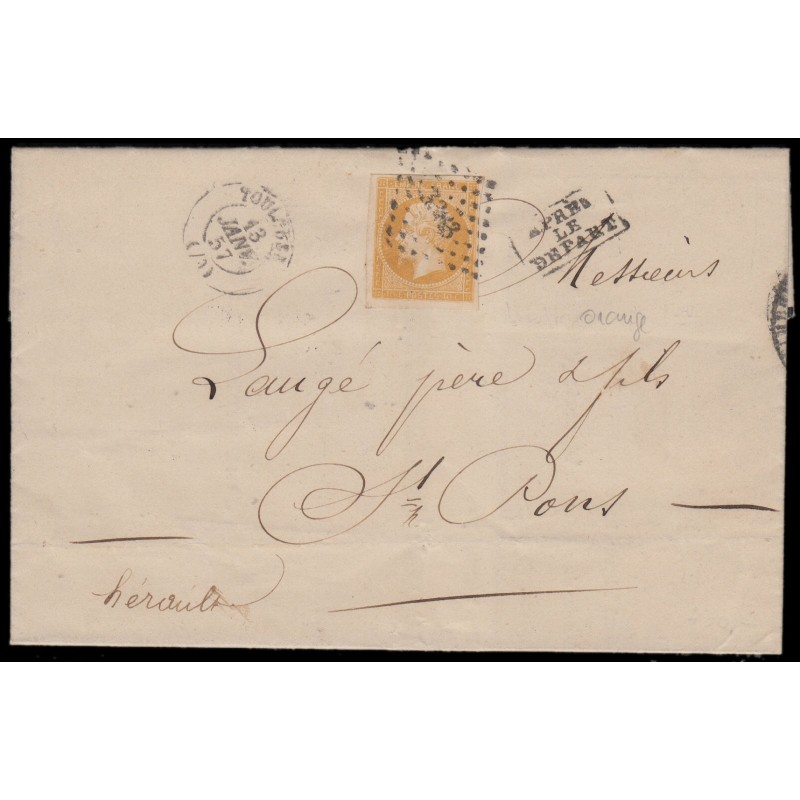 TOULOUSE
13
JANV.
57
(30)
APRÈS
LE
DEPART
Messieurs
orange
Laugé père & fils
St Pons
hérault